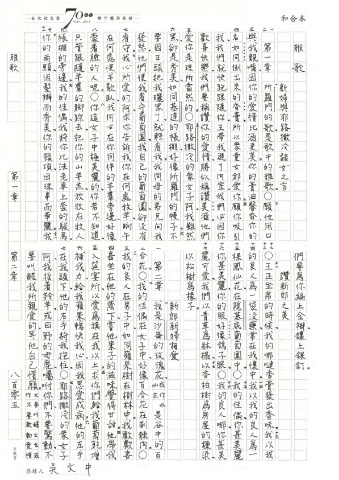 和合本
雅歌
新婦與耶路撒冷諸女之言
第一章 所羅門的歌是歌中的雅歌願他用口
與我親嘴因你的愛情比酒更美你的膏油馨香你的
名如同倒出來的香膏所以眾童女都愛你願你吸引
我我們就快跑跟隨你王帶我進了內室我們必因你
歡喜快樂我們要稱讚你的愛情勝似稱讚美酒他們
愛你是理所當然的○耶路撒冷的眾女子阿我雖然
黑卻是秀美如同基達的帳棚好像所羅門的幔子不
要因日頭把我曬黑了就輕看我我同母的弟兄向我
發怒他們使我看守葡萄園我自己的葡萄園卻沒有
看守我心所愛的阿求你告訴我你在何處牧羊晌午
在何處使羊歇臥我何必在你同伴的羊群旁邊好像
蒙著臉的人呢○你這女子中極美麗的你若不知道
只管跟隨羊群的腳蹤去把你的山羊羔牧放在牧人
帳棚的旁邊我的佳偶我將你比法老車上套的駿馬
你的兩腮因髮辮而秀美你的頸項因珠串而華麗我
們要為你編上金辮鑲上銀釘
讚新郎之美
○王正坐席的時候我的哪噠香膏發出香味我以我
的良人為一袋沒藥常在我懷中我以我的良人為一
棵鳳仙花在隱基底葡萄園中○我的佳偶你甚美麗
你甚美麗你的眼好像鴿子眼○我的良人哪你甚美
麗可愛我們以青草為床榻以香柏樹為房屋的棟梁
以松樹為椽子
新郎新婦相愛
第二章 我是沙崙的玫瑰花或作水仙花是谷中的百
合花○我的佳偶在女子中好像百合花在荊棘內○
我的良人在男子中如同蘋果樹在樹林中我歡歡喜
喜坐在他的蔭下嘗他果子的滋味覺得甘甜他帶我
入筵宴所以愛為旗在我以上求你們給我葡萄乾增
補我力給我蘋果暢快我心因我思愛成病他的左手
在我頭下他的右手將我抱住○耶路撒冷的眾女子
阿我指著羚羊或田野的母鹿囑咐你們不要驚動不
要叫醒我所愛的等他自己情願
雅歌
第一章
第二章
八百零五
吳文中